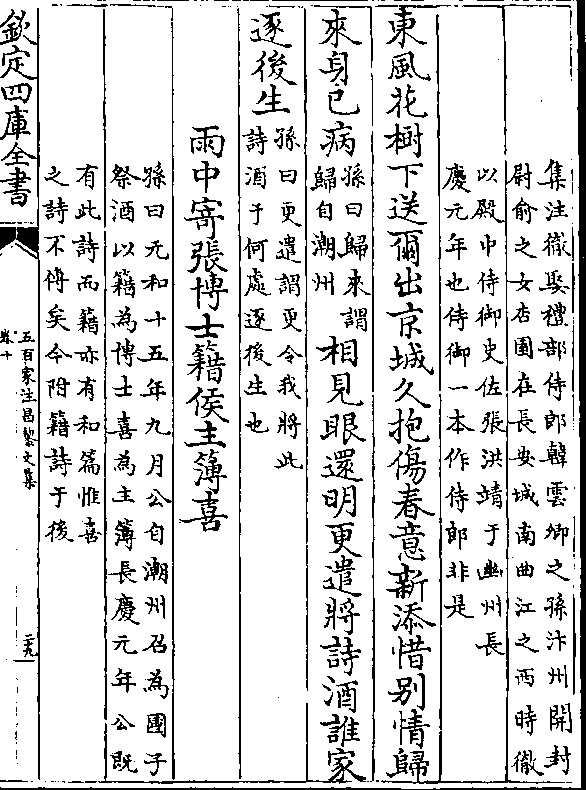 集注徹娶禮部侍郎韓雲卿之孫汴州開封
尉俞之女杏園在長安城南曲江之西時徹
以殿中侍御史佐張洪靖于幽州長
慶元年也侍御一本作侍郎非是
東風花樹下送爾出京城久抱傷春意新添惜别情歸
來身已病
孫曰歸來謂
歸自潮州
相見眼還明更遣將詩酒誰家
逐後生
孫曰更遣謂更令我將此
詩酒于何處逐後生也
雨中寄張博士籍侯主簿喜
孫曰元和十五年九月公自潮州召為國子
祭酒以籍為博士喜為主簿長慶元年公既
有此詩而籍亦有和篇惟喜
之詩不傳矣今附籍詩于後
欽定四庫全書
五百家注昌黎文集
卷十
二十九